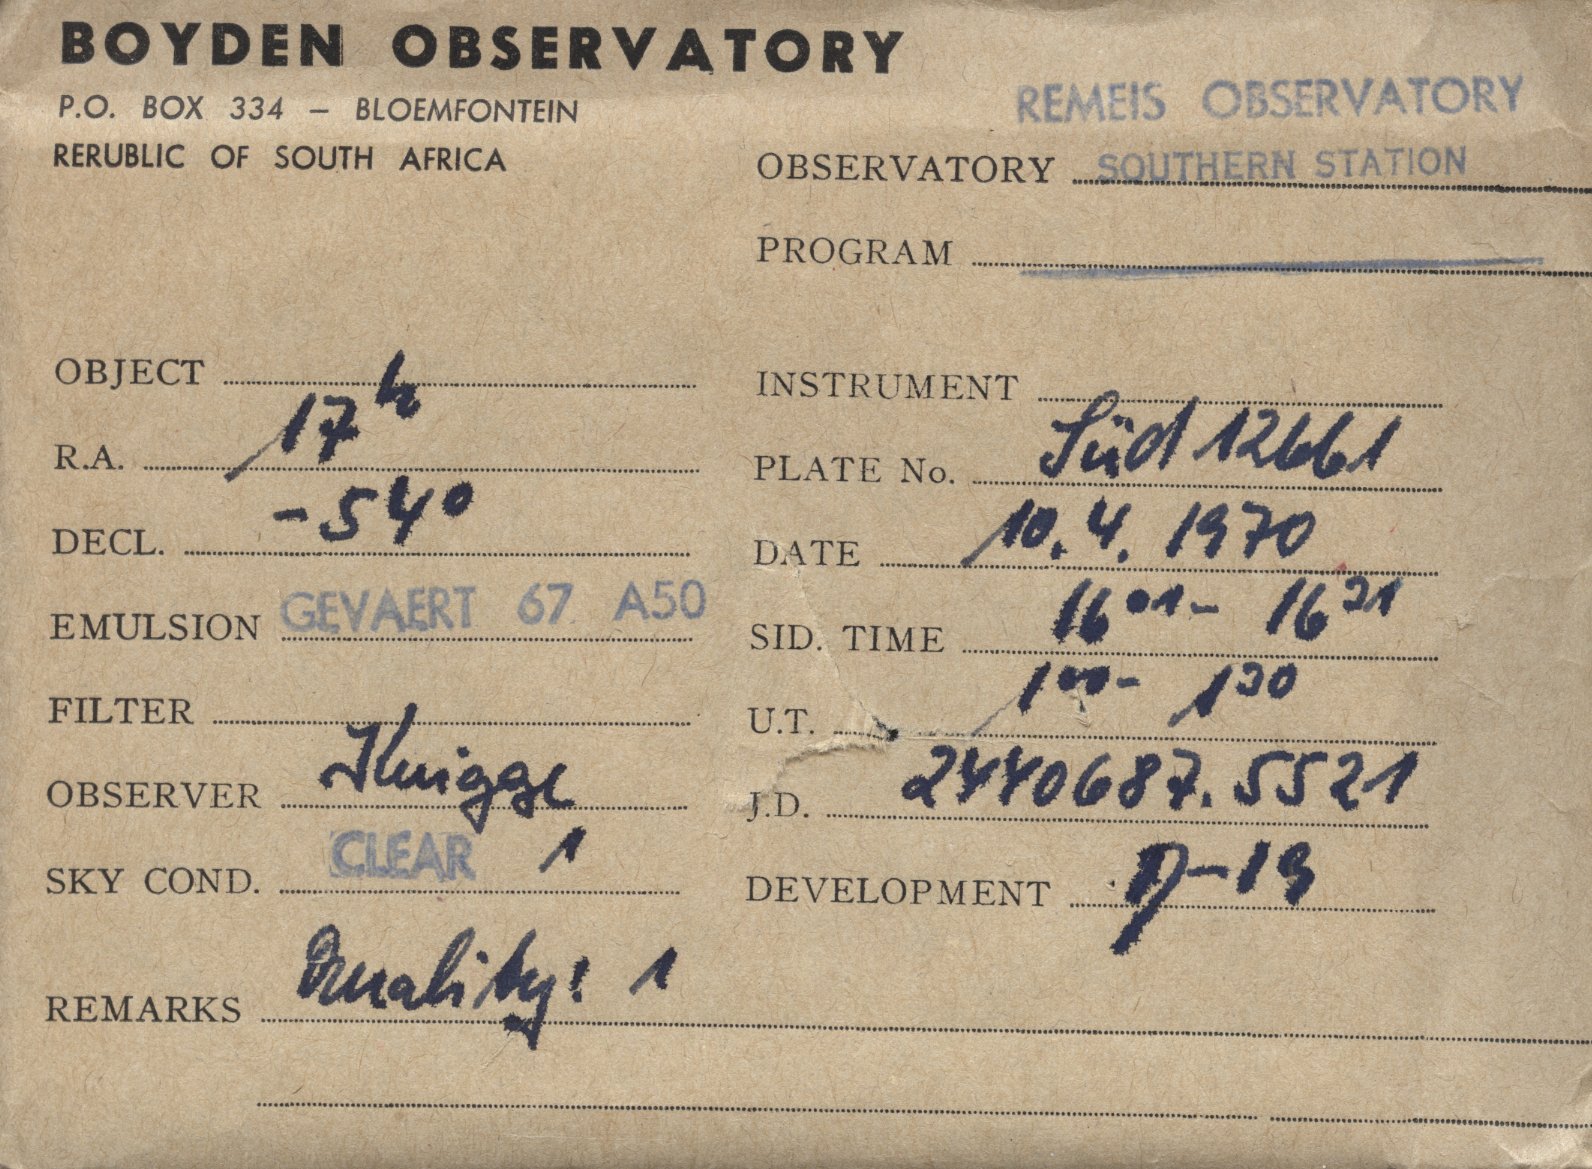 BOYDEN OBSERVATORY
P.O. BOX 334 – BLOEMFONTEIN
RERUBLIC OF SOUTH AFRICA
REMEIS OBSERVATORY
OBSERVATORY SOUTHERN STATION
PROGRAM
OBJECT
R.A. 17h
DECL. -54°
EMULSION GEVAERT 67 A50
FILTER
OBSERVER Knigge
SKY COND. CLEAR 1
INSTRUMENT
PLATE No. Süd 12661
DATE 10.4.1970
SID. TIME 16 01 - 16 31
U.T. 1 00 - 1 30
J.D. 2440687.5521
DEVELOPMENT D-19
REMARKS Quality: 1